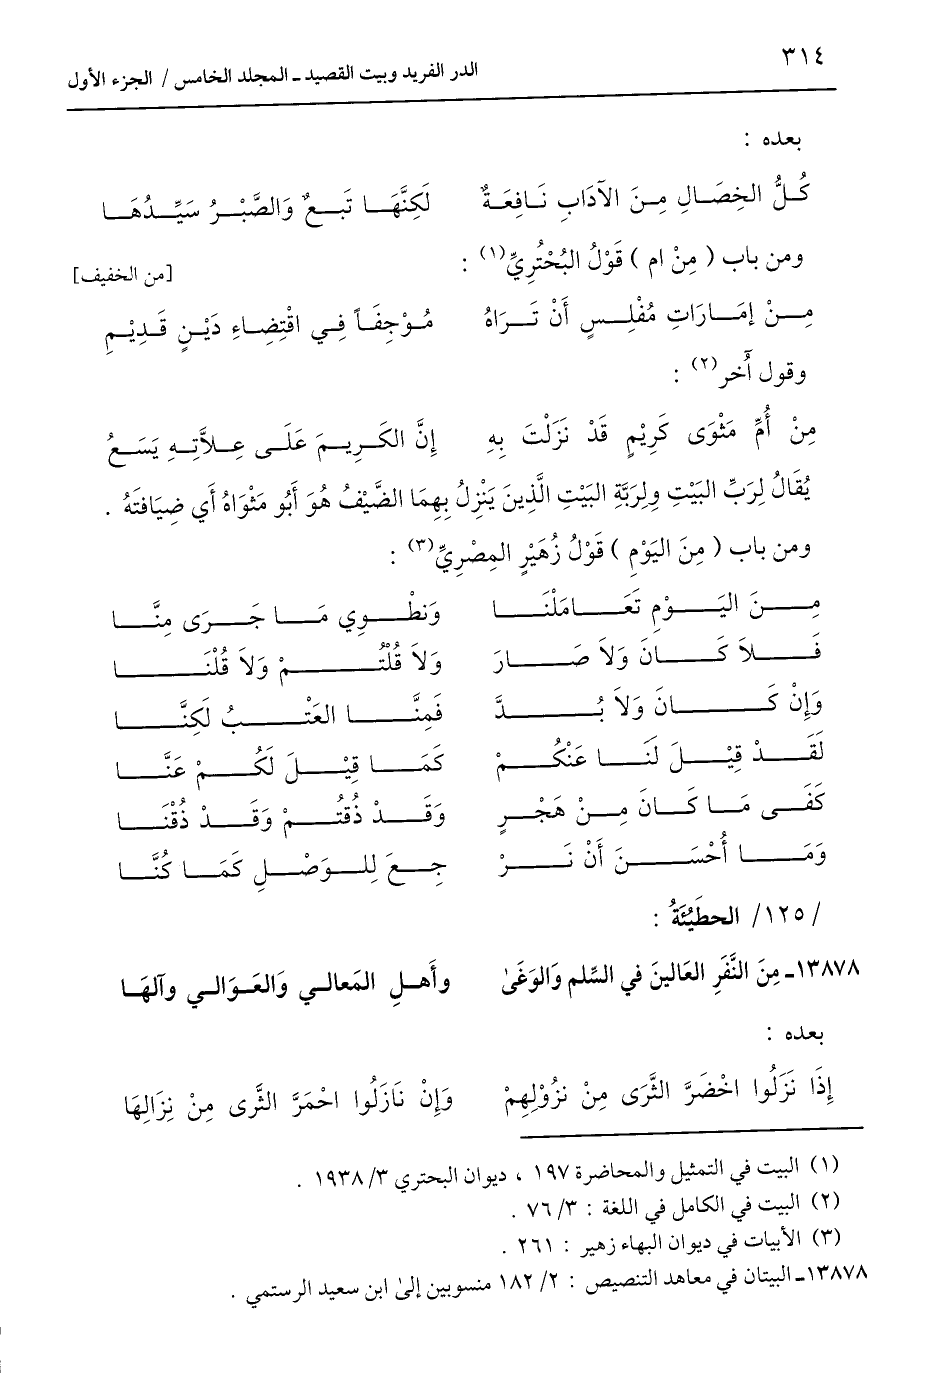 ٣١٤
الدر الفريد وبيت القصيد ـ المجلد الخامس / الجزء الأول
بعده :
كُلُّ الخِصَالِ مِنَ الآدَابِ نَافِعَةٌ لَكِنَّهَا تَبَعٌ وَالصَّبْرُ سَيِّدُهَا
ومن باب ( مِنْ ام ) قَوْلُ البُحْتُرِيِّ(١) :
[من الخفيف]
مِنْ إِمَارَاتِ مُفْلِسٍ أَنْ تَرَاهُ مُوْجِفَاً فِي اقْتِضَاءِ دَيْنٍ قَدِيْمِ
وقول آخر(٢) :
مِنْ أُمِّ مَثْوَى كَرِيْمٍ قَدْ نَزَلْتَ بِهِ إِنَّ الكَرِيمَ عَلَى عِلاَّتِهِ يَسَعُ
يُقَالُ لِرَبِّ البَيْتِ وِلِرَبَّةِ البَيْتِ الَّذِينَ يَنْزِلُ بِهِمَا الضَّيْفُ هُوَ أَبُو مَثْوَاهُ أَي ضِيَافَتَهُ .
ومن باب ( مِنَ اليَوْمِ ) قَوْلُ زُهَيْرِ المِصْرِيِّ(٣) :
مِنَ اليَوْمِ تَعَامَلْنَا وَنَطْوِي مَا جَرَى مِنَّا
فَلاَ كَانَ وَلاَ صَارَ وَلاَ قُلْتُمْ وَلاَ قُلْنَا
وَإِنْ كَانَ وَلاَ بُدَّ فَمِنَّا العَتْبُ لَكِنَّا
لَقَدْ قِيْلَ لَنَا عَنْكُمْ كَمَا قِيْلَ لَكُمْ عَنَّا
كَفَى مَا كَانَ مِنْ هَجْرٍ وَقَدْ ذُقتُمْ وَقَدْ ذُقْنَا
وَمَا أَحْسَنَ أَنْ نَرْ جِعَ لِلوَصْلِ كَمَا كُنَّا
/١٢٥/ الحطَيْئَةُ :
١٣٨٧٨ـ مِنَ النَّفَرِ العَالينَ في السِّلمِ وَالوَغَىٰ وأَهلِ المَعالي وَالعَوَالي وآلهَا
بعده :
إِذَا نَزَلُوا اخْضَرَّ الثَّرَى مِنْ نزُوْلِهِمْ وَإِنْ نَازَلُوا احْمَرَّ الثَّرى مِنْ نِزَالِهَا
(١) البيت في التمثيل والمحاضرة ١٩٧ ، ديوان البحتري ٣/ ١٩٣٨ .
(٢) البيت في الكامل في اللغة : ٣/ ٧٦ .
(٣) الأبيات في ديوان البهاء زهير : ٢٦١ .
١٣٨٧٨ـ البيتان في معاهد التنصيص : ٢/ ١٨٢ منسوبين إلىٰ ابن سعيد الرستمي .